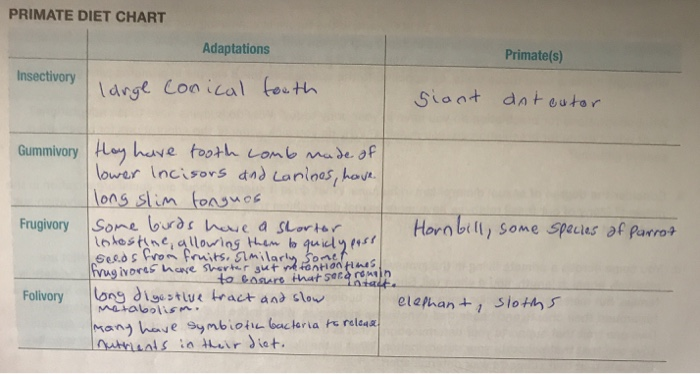 PRIMATE DIET CHART
Adaptations
Primate(s)
Insectivory
large conical teeth
Giant anteater
Gummivory
they have tooth comb made of
lower incisors and canines, have
long slim tongues
Frugivory
Some birds have a shorter
intestine, allowing them to quickly pass
seeds from fruits. Similarly some
frugivores have shorter gut retention times
to ensure that seed remain
intact.
Hornbill, some species of Parrot
Folivory
long digestive tract and slow
metabolism.
Many have symbiotic bacteria to release
nutrients in their diet.
elephant, sloths